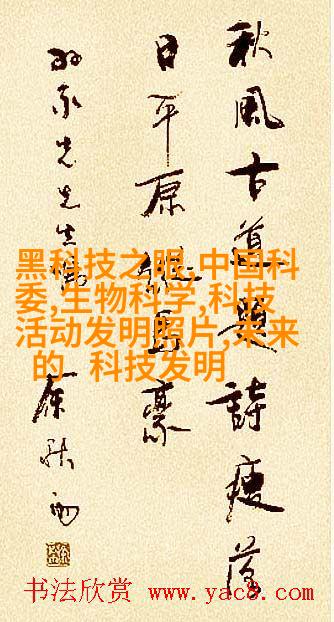 秋風古道題詩瘦落
日平原纵马豪
先生
余秋雨
黑科技之眼,中国科
委,生物科学,科技
活动发明照片,未来
的 科技发明
书法欣赏 www.yac8.com